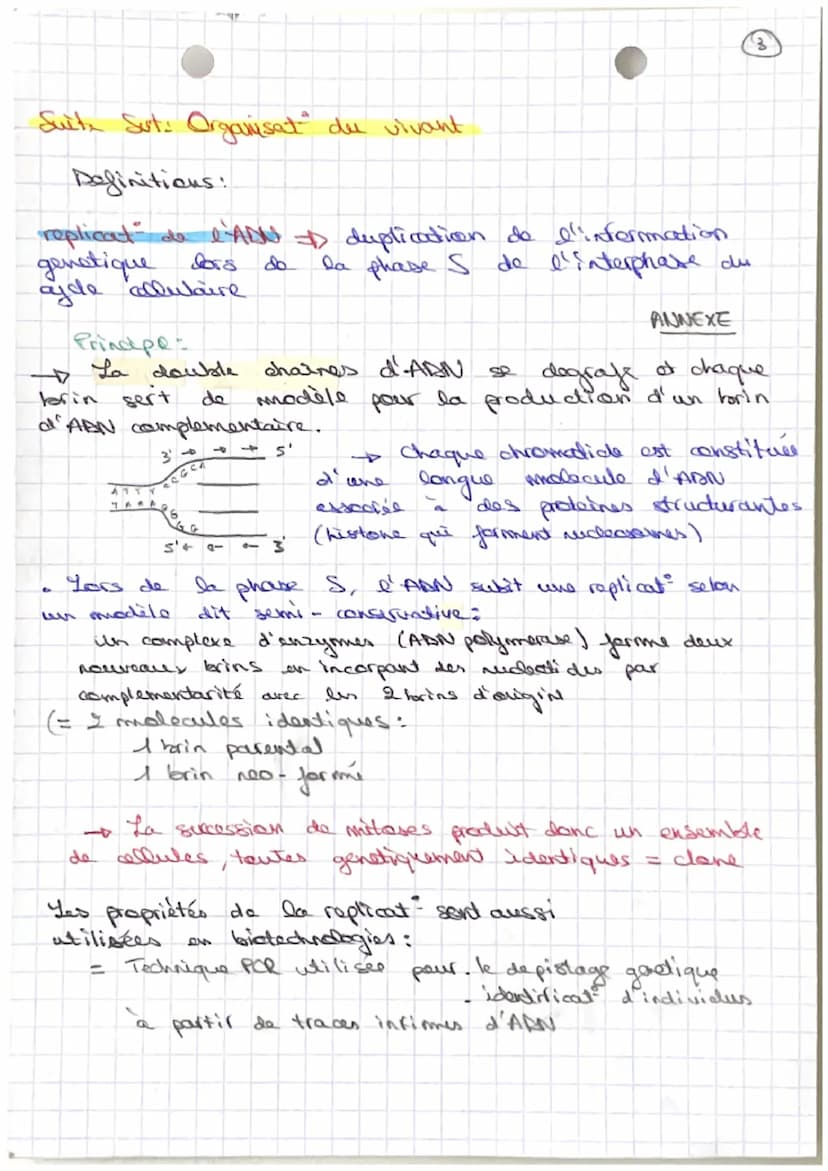 3
Suite Svt: Organisat° du vivant
Definitions:
replicat° de l'ADN => duplication de l'information
genetique lors de la phase S de l'interphase du
cycle cellulaire
ANNEXE
Principe:
→ La double chaines d'ADN se degrafe et chaque
brin sert de modèle pour la production d'un brin
d'ADN complementaire.
3' → → → 5'
→ Chaque chromatide est constituée
d'une longue molecule d'ADN
associée à des proteines structurantes
(histone qui forment nucleosomes)
5' ← ← ← 3'
• Lors de la phase S, l'ADN subit une replicat° selon
un modèle dit semi-conservative:
Un complexe d'enzymes (ADN polymerase) forme deux
nouveaux brins en incorpant des nucleotides par
complementarité avec les 2 brins d'origine
(= 2 molecules identiques:
1 brin parental
1 brin neo-formé
→ La succession de mitoses produit donc un ensemble
de cellules, toutes genetiquement identiques = clone
Les propriétés de la replicat° sont aussi
utilisées en biotechnologies:
= Technique PCR utilisée pour . le depistage genetique
- identificat° d'individus
à partir de traces infimes d'ADN